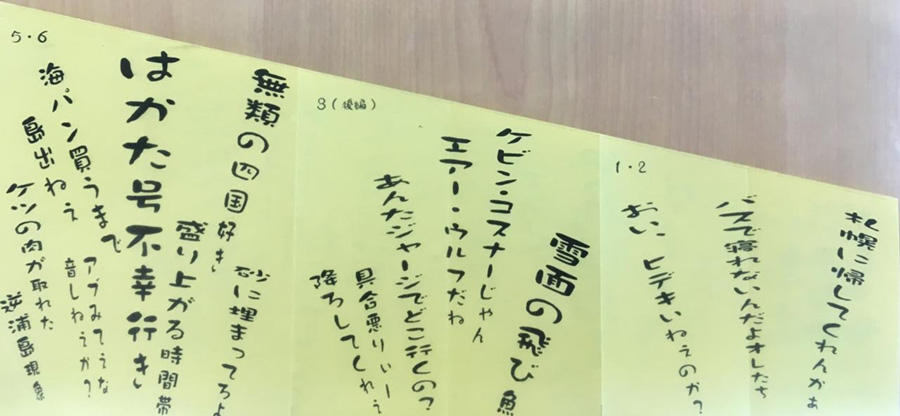 1・2
札幌に帰してくれんかぁ
バスで寝れないんだよオレたち
おい、ヒデキいねぇのか?
3(後編)
雪面の飛び魚
ケビン・コスナーじゃん
エアー・ウルフだね
あんたジャージでどこ行くの?
具合悪りぃー
降ろしてくれぇ
5・6
無類の四国好き
砂に埋まってろよ
盛り上がる時間帯
はかた号不幸行き
海パン買うまで
島出ねぇ
アブみてぇな
音しねぇか?
ケツの肉が取れた
逆浦島現象